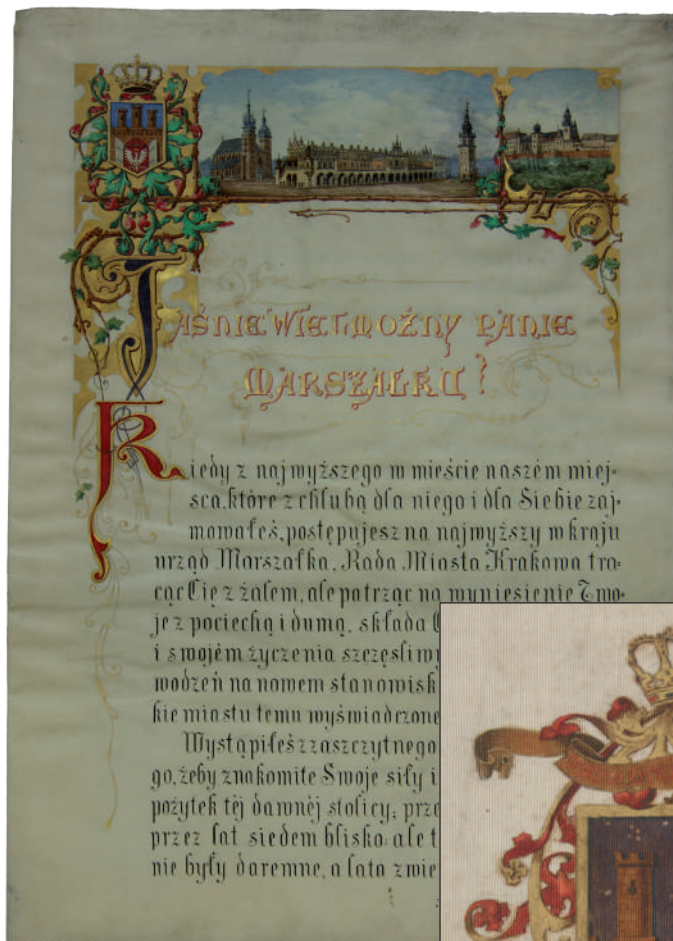 JAŚNIE WIELMOŻNY PANIE
MARSZAŁKU!
Kiedy z najwyższego w mieście naszém miej-
sca, które z chlubą dla niego i dla Siebie zaj-
mowałeś, postępujesz na najwyższy w kraju
urząd Marszałka, Rada Miasta Krakowa tra-
cąc Cię z żalem, ale patrząc na wyniesienie Two-
je z pociechą i dumą, składa
i swojém życzenia szczęśliwy
wodzeń na nowem stanowisk
kie miastu temu wyświadczone
Wystąpiłeś z zaszczytnego
go, żeby znakomite Swoje siły i
pożytek téj dawnéj stolicy; prze
przez lat siedem blisko: ale t
nie były daremne, a lata zwie